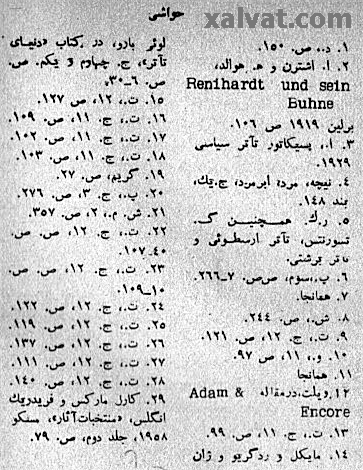 xalvat.com
حواشی
۱. د.، ص. ۱۵۰.
۲. ا. اشترن و هـ. هوالد،
Renihardt und sein
Buhne
برلین ۱۹۱۹ ص ۱۰۶.
۳. ا.، پیسکاتور تآتر سیاسی
۱۹۲۹.
۴. نیچه، مرد، ابرمرد، ج. یک،
بند ۱۴۸.
۵. ر.ك. همچنین گ.
تسورتنس، تآتر ارسطوئی و
تآتر برشتی.
۶. پ.، سوم، صص. ۷_۲۶۶.
۷. همانجا.
۸. ش.، ص. ۲۴۴.
۹. ت.، ج. ۱۲، ص. ۱۲۱.
۱۰. و.، ۱۱، ص ۹۷.
۱۱. همانجا
۱۲. ویلت. درمقاله Adam &
Encore
۱۳. ت.، ج. ۱۱، ص. ۹۹.
۱۴. مایکل و ردگریو و ژان
لوئی بارو، در کتاب «دنیای
تآتر»، ج. چهارم و یکم. ص.
ص. ۶_۳۰.
۱۵. ت.، ۱۲، ص ۱۲۷.
۱۶. ت.، ج. ۱۱، ص. ۱۰۹.
۱۷. ت.، ج. ۱۱، ص. ۱۰۲.
۱۸. ت.، ج. ۱۱، ص. ۱۰۳.
۱۹. گریم، ص. ۲۷.
۲۰. پ.، ج. ۳، ص. ۲۷۶.
۲۱. ش. م.، ۲، ص. ۳۵۷.
۲۲. ت.، ج. ۱۲، ص. ص.
۴۰_۱۰۷.
۲۳. ت.، ج. ۱۲، ص. ص.
۱۰_۱۰۹.
۲۴. ت.، ج. ۱۲، ص. ۱۲۲.
۲۵. ت.، ج. ۱۲، ص. ۱۱۹.
۲۶. ت.، ج. ۱۲، ص. ۱۳۷.
۲۷. ت.، ج. ۱۲، ص. ۱۱۱.
۲۸. ت.، ج. ۱۲، ص. ۱۴۰.
۲۹. کارل مارکس و فریدریك
انگلس، «منتخبات آثار»، مسکو
۱۹۵۸، جلد دوم، ص. ۷۹.